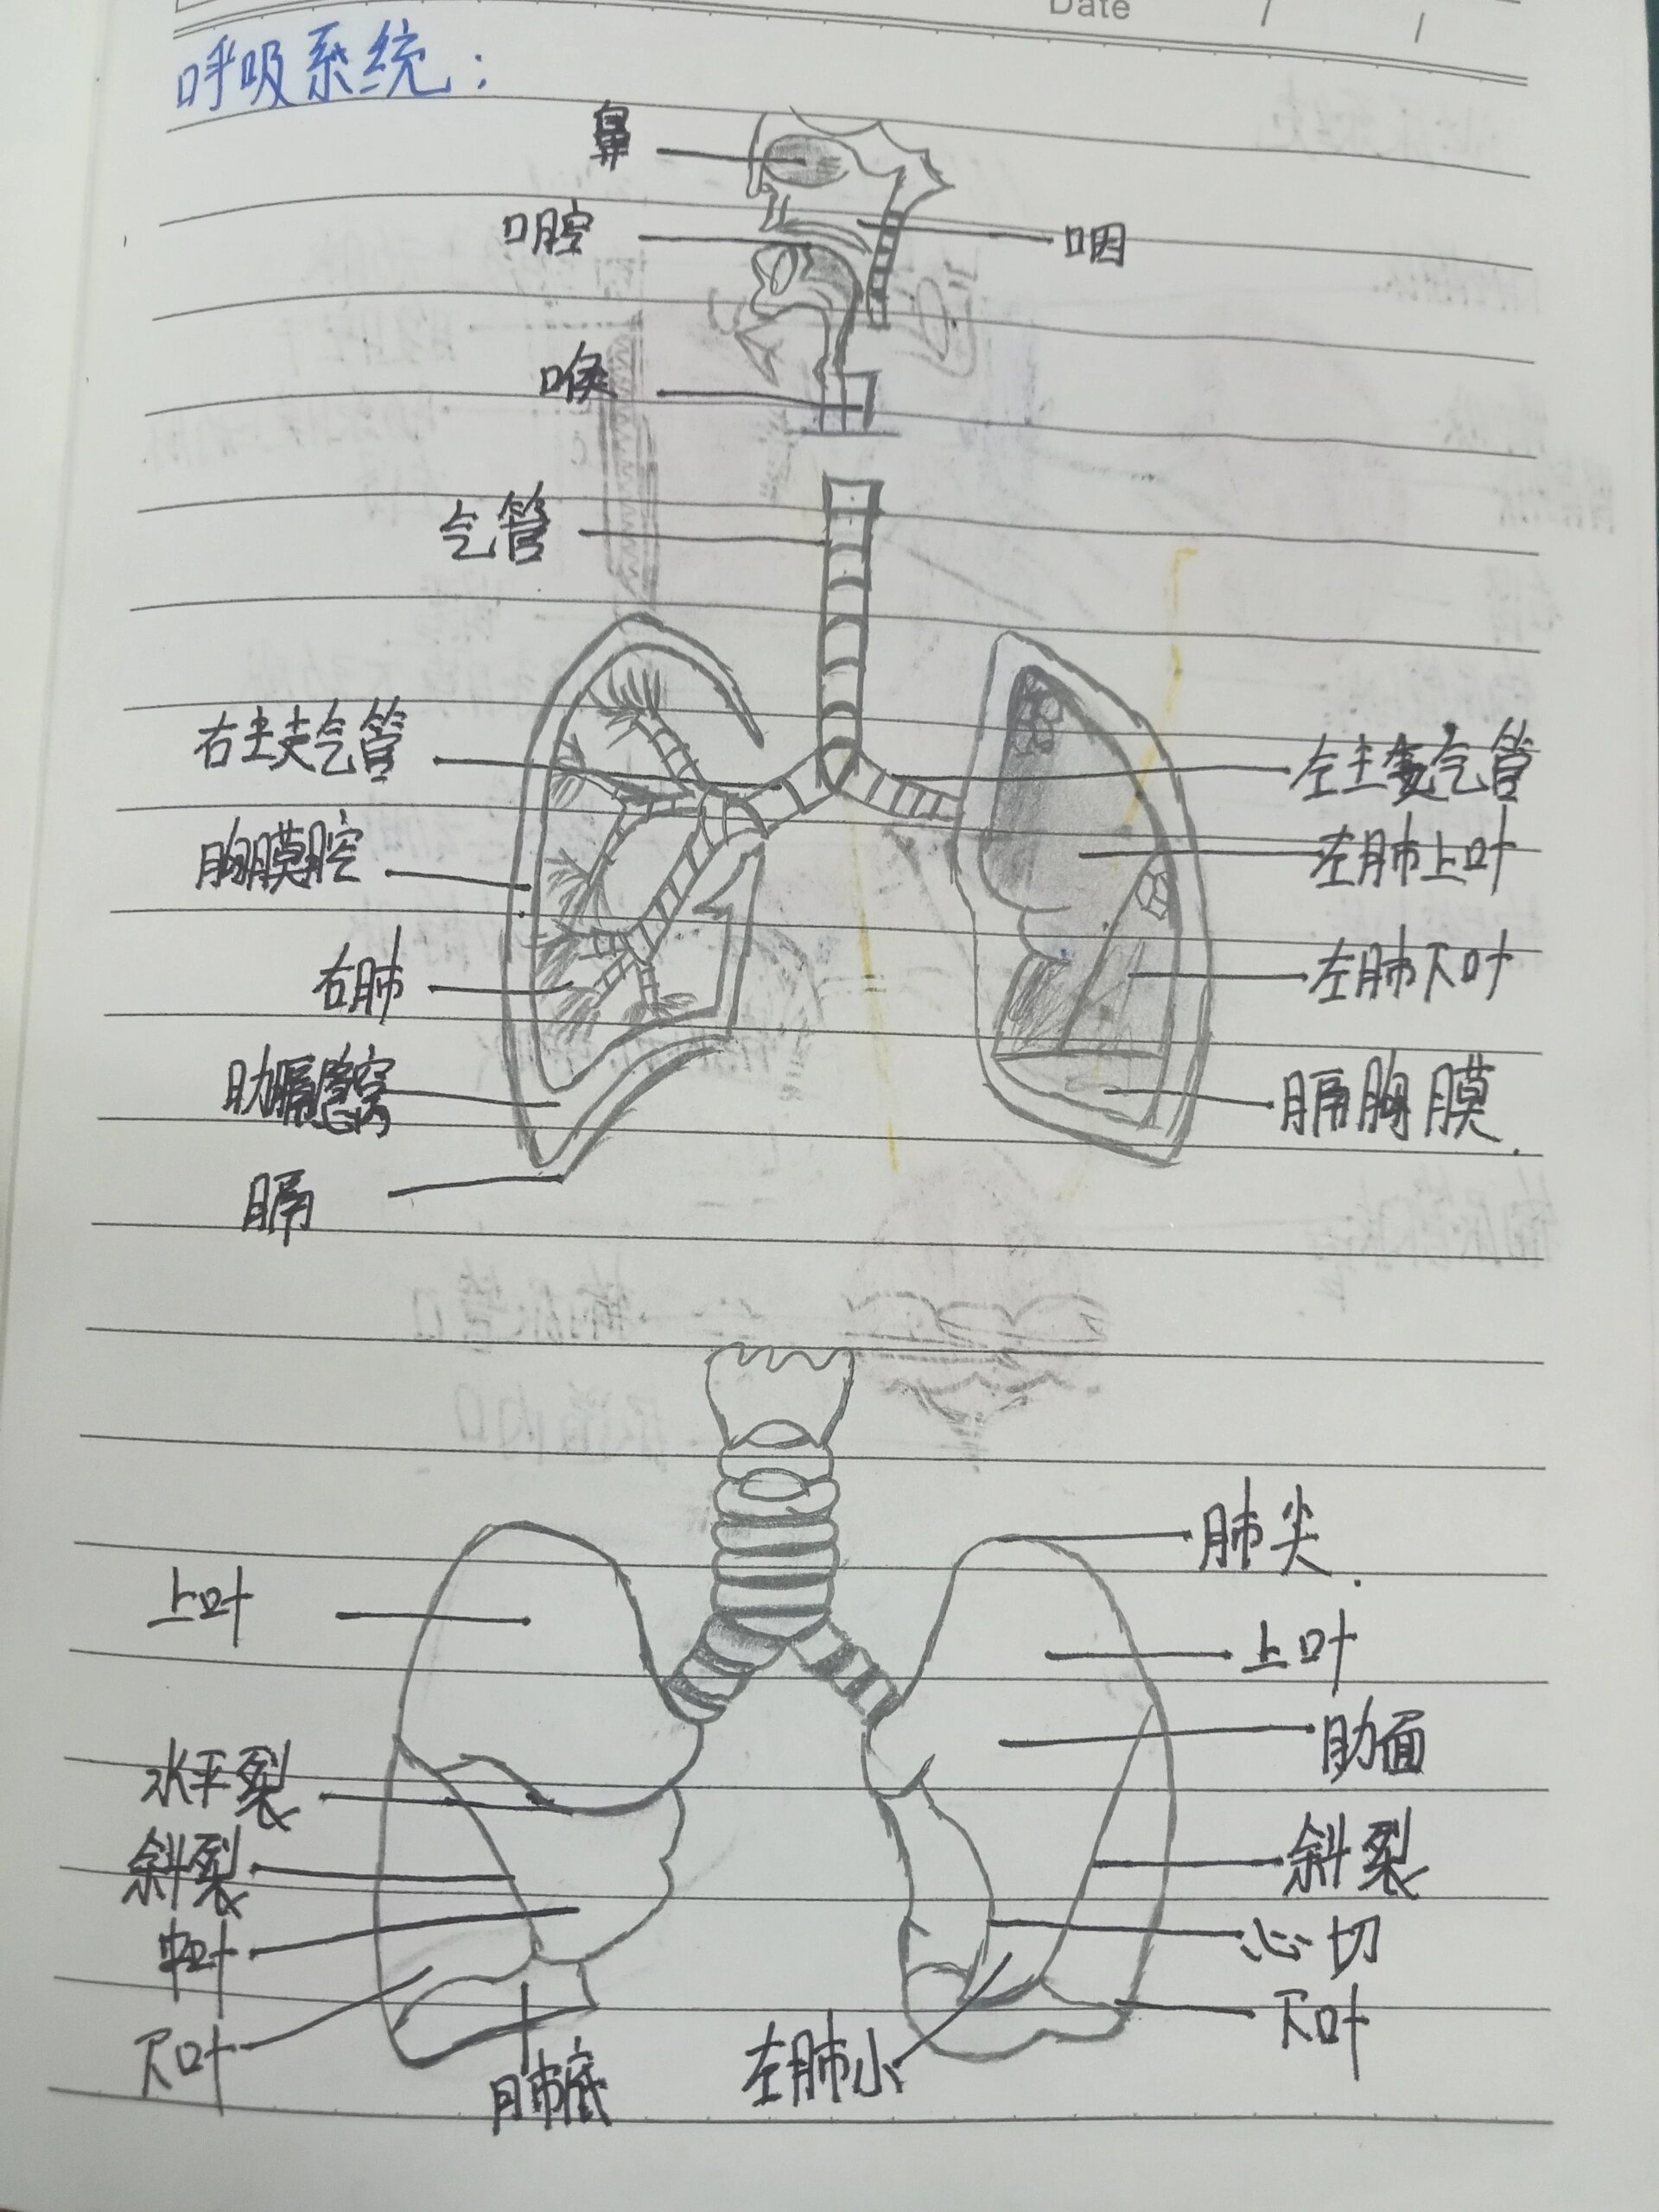 Date / /
呼吸系统:
鼻
口腔
咽
喉
气管
右主支气管
左主支气管
胸膜腔
左肺上叶
右肺
左肺下叶
肋膈隐窝
膈胸膜
膈
肺尖
上叶
上叶
肋面
水平裂
斜裂
斜裂
中叶
心切
下叶
下叶
肺底
左肺小